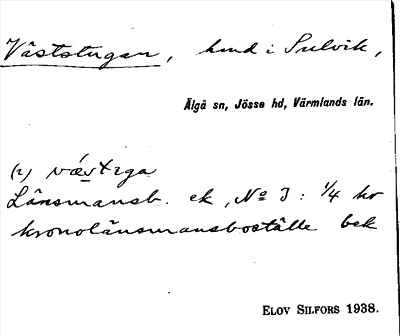 Väststugan, hmd i Sulvik,
Älgå sn, Jösse hd, Värmlands län.
(r) væ̀stɛga
Länsmansb. ek, No 3: 1/4 kr
kronolänsmansboställe bek
ELOV SILFORS 1938.